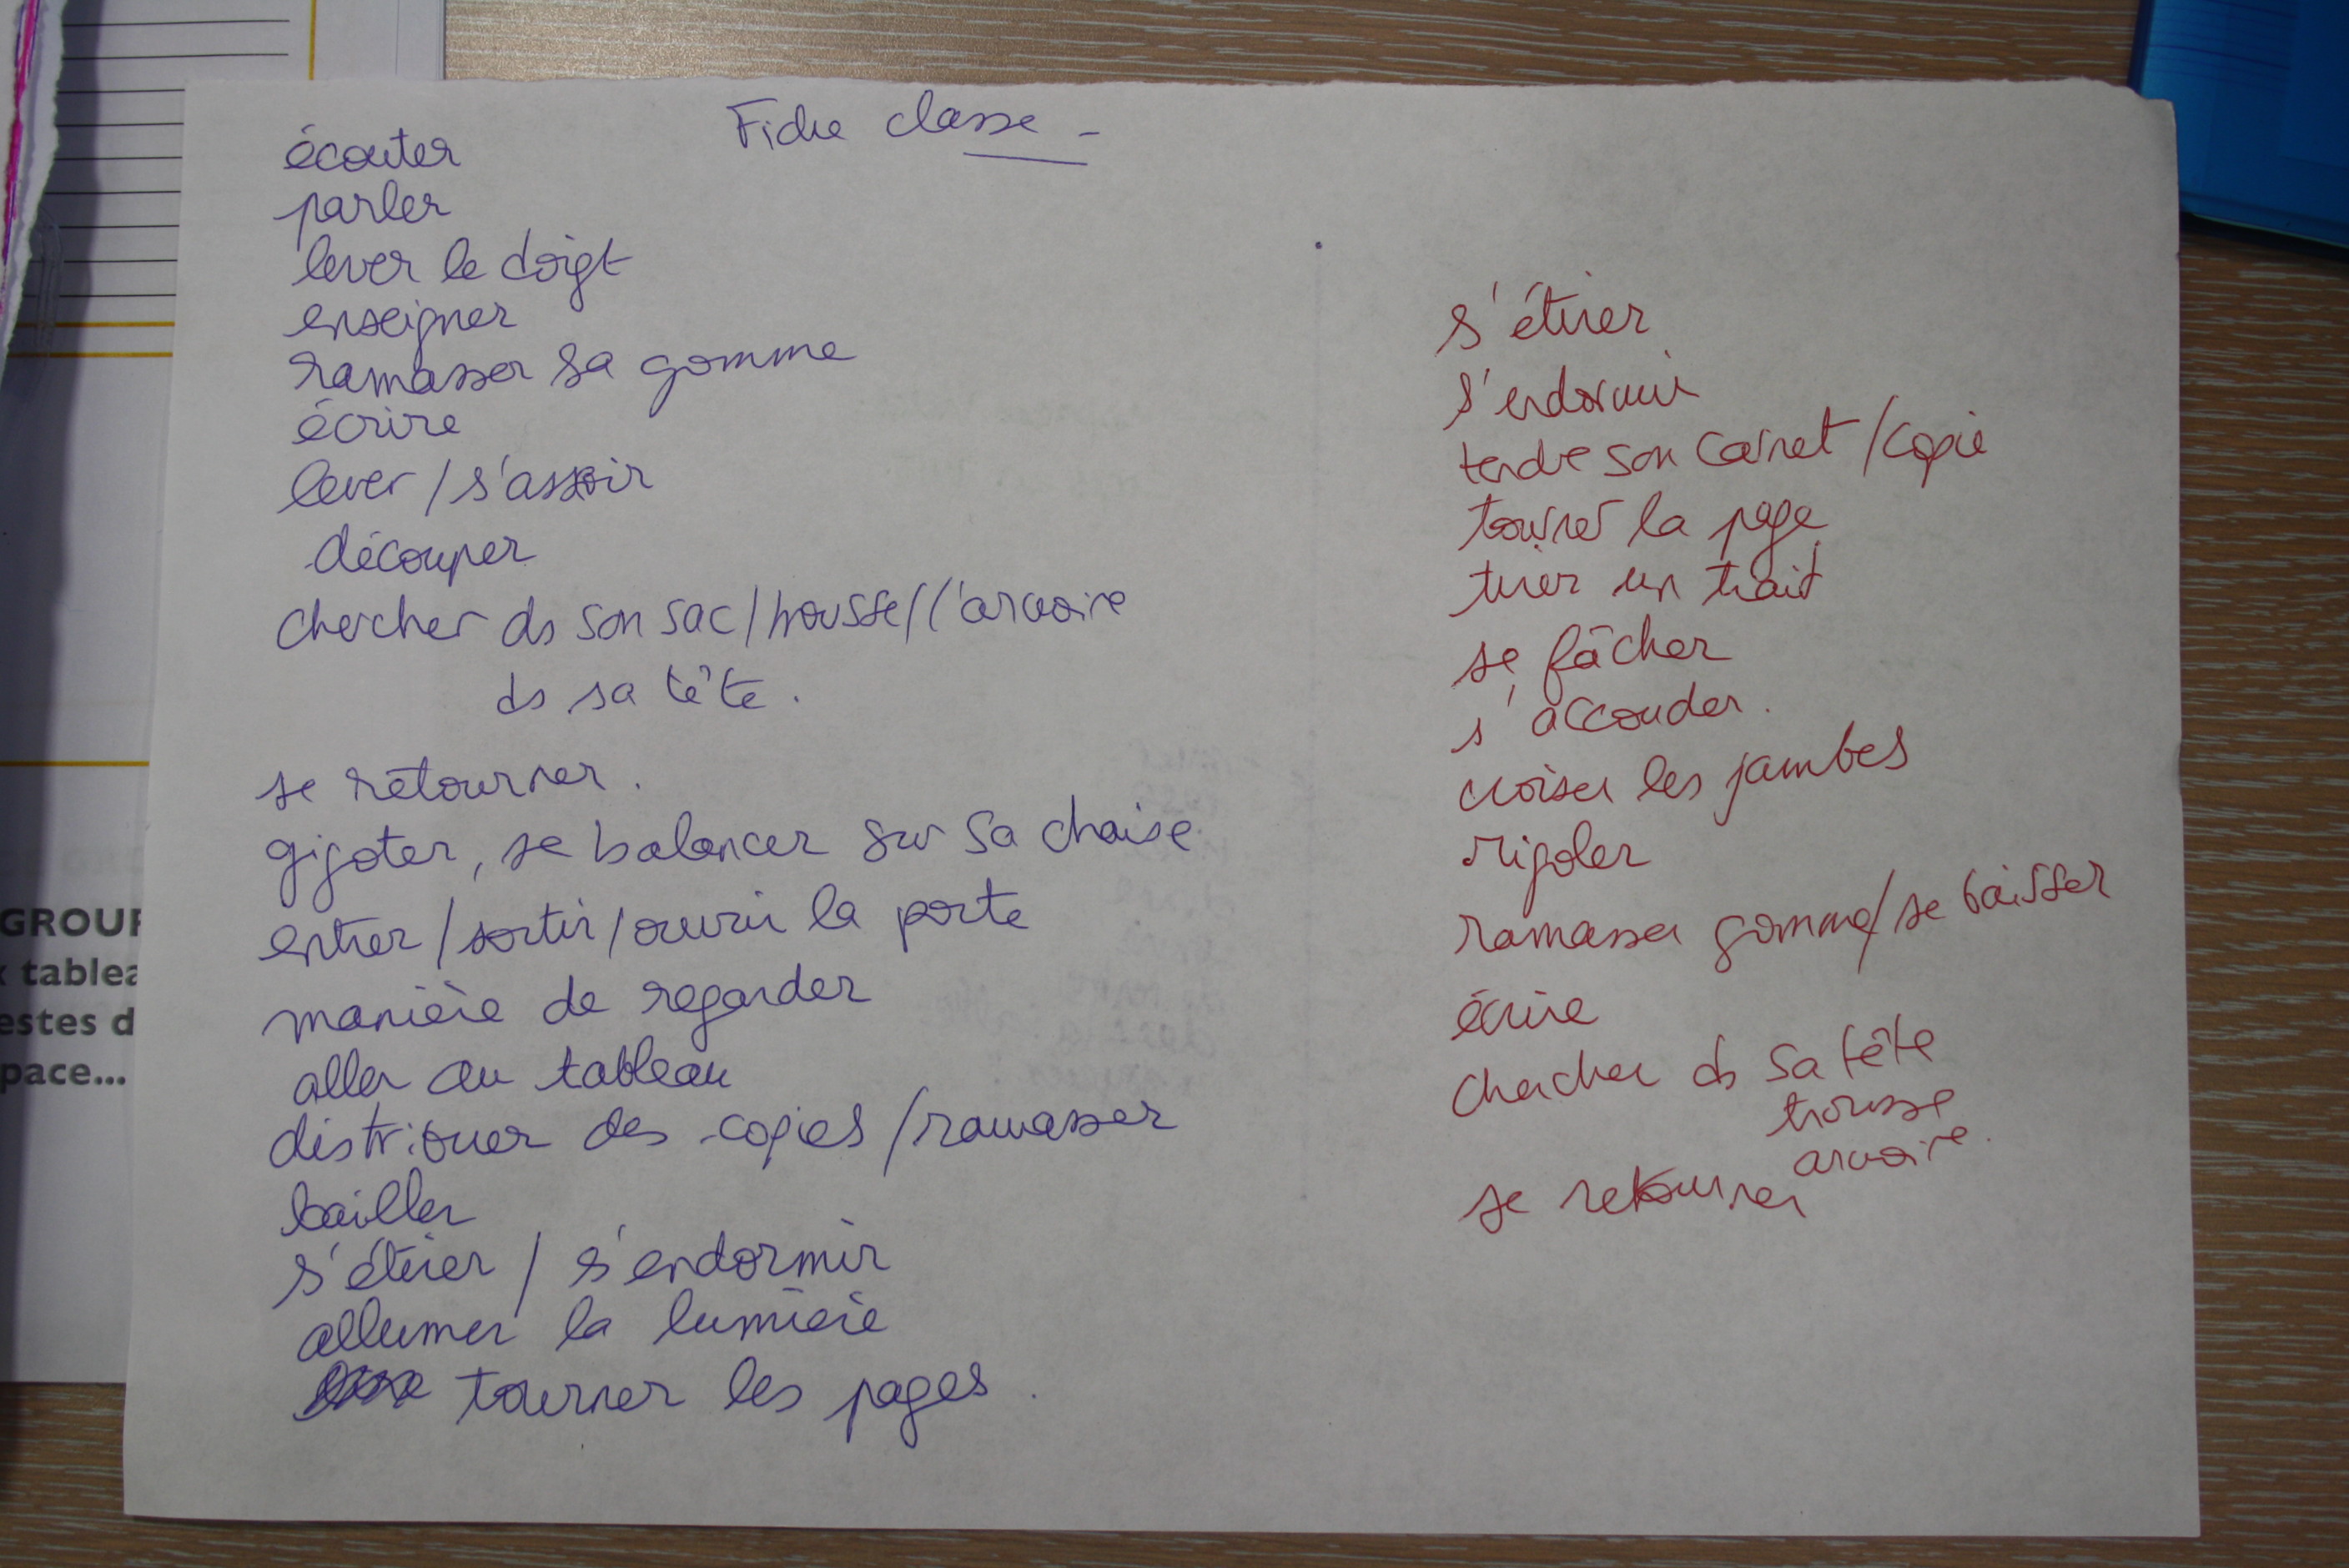 Fiche classe -
écouter
parler
lever le doigt
enseigner
ramasser sa gomme
écrire
lever / s'assoir
découper
chercher ds son sac/trousse/l'armoire
ds sa tête.
se retourner.
gigoter, se balancer sur sa chaise
entrer / sortir / ouvrir la porte
manière de regarder
aller au tableau
distribuer des copies / ramasser
bailler
s'étirer / s'endormir
allumer la lumière
tourner les pages.
s'étirer
s'endormir
tendre son carnet / copie
tourner la page
tirer un trait
se fâcher
s'accouder.
croiser les jambes
rigoler
ramasser gomme/se baisser
écrire
chercher ds sa tête
trousse
armoire.
se retourner
GROUP
tablea
estes d
pace...